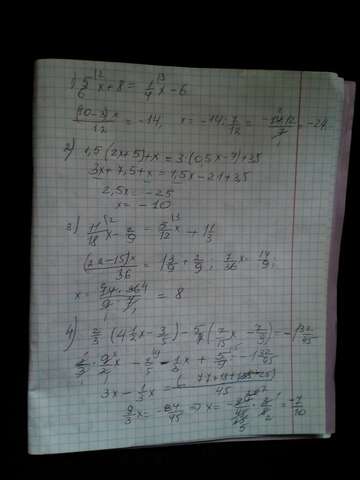 1) 5/6 x + 8 = 1/4 x - 6
(10-3)x/12 = -14, x = -14 : 7/12 = -14·12/7 = -24
2) 1,5·(2x+5)+x = 3·(0,5x-7)+3,5
3x+7,5+x = 1,5x-21+3,5
2,5x = -25
x = -10
3) 11/18 x - 2/9 = 5/12 x + 1 1/3
(22-15)x/36 = 1 3/9 + 2/9; 7/36 x = 14/9;
x = 14·36/9·7 = 8
4) 2/3 (4 1/2 x - 3/5) - 5/7 (7/15 x - 7/9) = -1 32/45
2/3 · 9/2 x - 2/5 - 1/3 x + 5/9 = -1 32/45
3x - 1/3 x =